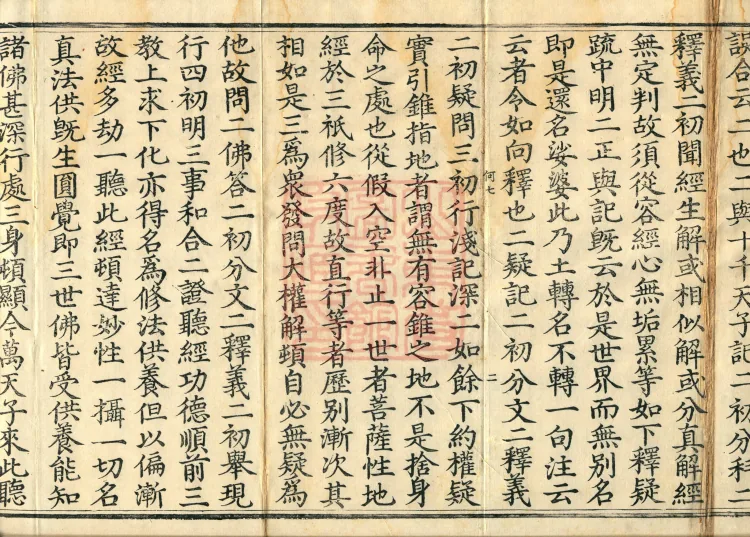 謂合云二也二與十千天子記二初分科二
釋義二初聞經生解或相似解或分真解經
無定判故須從容經心無垢累等如下釋疑
疏中明二正與記既云於是世界而無別名
即是還名娑婆此乃土轉名不轉一句注云
云者令如向釋也二疑記二初分文二釋義
何七 二
二初疑問三初行淺記深二如餘下約權疑
實引錐指地者謂無有容錐之地不是捨身
命之處也從假入空非止一世者菩薩性地
經於三祇修六度故直行等者歷別漸次其
相如是三為眾發問大權解頓自必無疑為
他故問二佛答二初分文二釋義二初舉現
行四初明三事和合二證聽經功德順前三
教上求下化亦得名為修法供養但以偏漸
故經多劫一聽此經頓達妙性一攝一切名
真法供既生圓覺即三世佛皆受供養能知
諸佛甚深行處三身頓顯今萬天子來此聽